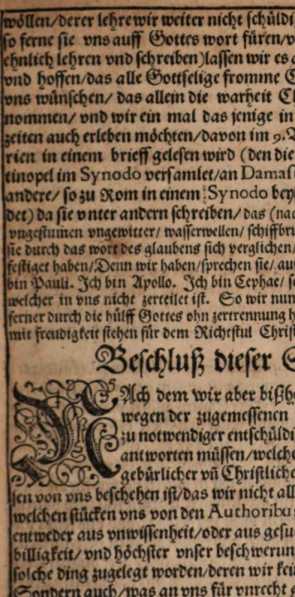 wöllen/derer lehre wir weiter nicht schüldi
so ferne sie vns auff Gottes wort füren/v
ehnlich lehren vnd schreiben)lassen wir es g
vnd hoffen/das alle Gottselige fromme C
vns wünschen/ das allein die warheit Ch
nommen/ vnd wir ein mal das jenige in
zeiten auch erleben möchten/dauon im 9.
rien in einem brieff gelesen wird (den die
tinopel im Synodo versamlet/an Damas
andere/ so zu Rom in einem Synodo bey
det) da sie vnter andern schreiben/ das (nac
vngestümen vngewitter/ wasserwellen/ schiffbru
sie durch das wort des glaubens sich verglichen/
festiget haben/Denn wir haben/sprechen sie/ au
bin Pauli. Ich bin Apollo. Ich bin Cephae/ s
welcher in vns nicht zerteilet ist. So wir nun
ferner durch die hülff Gottes ohn zertrennung h
mit freudigkeit stehen für dem Richtstul Chris
Beschluß dieser
NAch dem wir aber bißh
wegen der zugemessenen
zu notwendiger entschüldi
antworten müssen/welche
gebürlicher vñ Christliche
sen von vns beschehen ist/das wir nicht all
welchen stücken vns von den Authoribu
entweder aus vnwissenheit/oder aus gesu
billigkeit/ vnd höchster vnser beschwerun
solche ding zugelegt worden/deren wir kei
Sondern auch/was an vns für vnrecht g